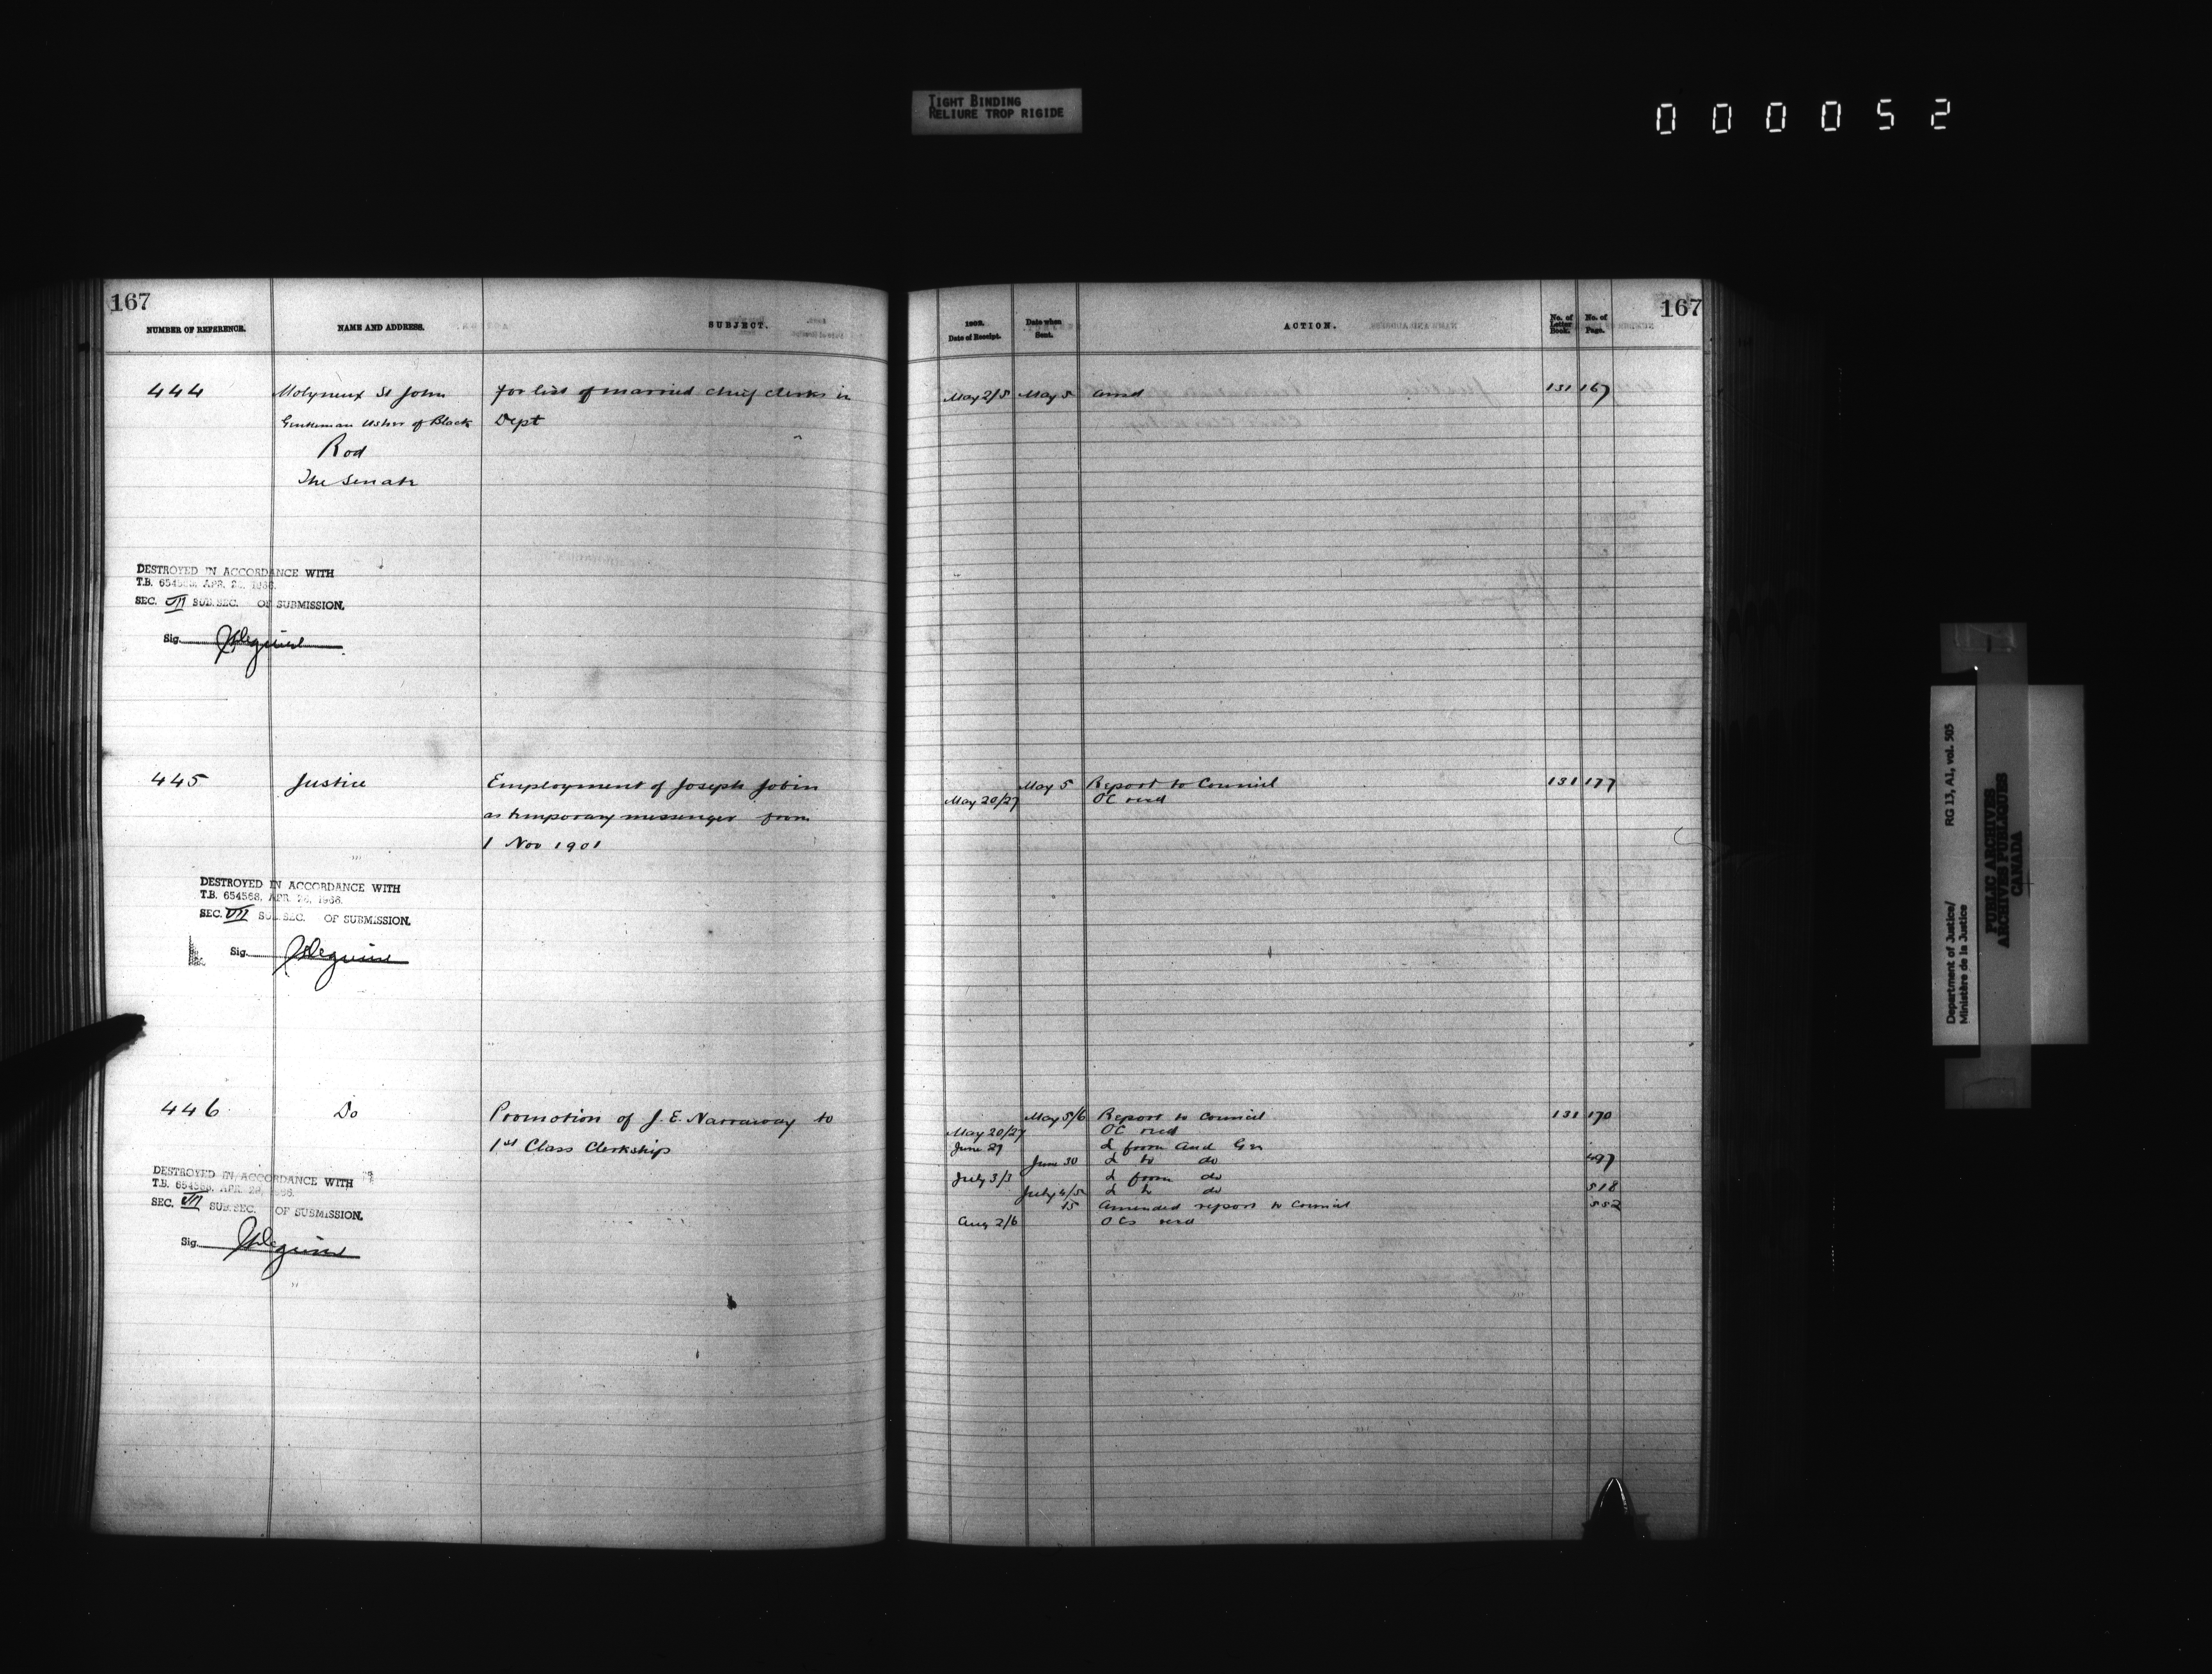 TIGHT BINDING
RELIURE TROP RIGIDE
000052
167
NUMBER OF REFERENCE.
NAME AND ADDRESS.
SUBJECT.
444
Molyneux St John
Gentleman Usher of Black
Rod
The Senate
For list of married chief clerks in
Dept
DESTROYED IN ACCORDANCE WITH
T.B. 654568, APR. 26, 1966.
SEC. VII SUB.SEC. OF SUBMISSION.
Sig.
445
Justice
Employment of Joseph Jobin
as temporary messenger from
1 Nov 1901
DESTROYED IN ACCORDANCE WITH
T.B. 654568, APR. 26, 1966.
SEC. VII SUB.SEC. OF SUBMISSION.
Sig.
446
Do
Promotion of J. E. Narraway to
1st Class Clerkship
DESTROYED IN ACCORDANCE WITH
T.B. 654568, APR. 26, 1966.
SEC. VII SUB.SEC. OF SUBMISSION.
Sig.
167
1902.
Date of Receipt.
Date when
Sent.
ACTION.
No. of
Letter
Book.
No. of
Page.
May 2/5 May 5 131 167
May 5 Report to Council 131 177
May 20/27 OC recd
May 5/6 Report to Council 131 170
May 20/27 OC recd
June 27 L from Aud Gen
June 30 L to do 497
July 3/3 L from do
July 4/5 L to do 518
15 Amended report to Council 552
Aug 2/6 OCs recd
Department of Justice/
Ministère de la Justice
RG 13, A1, vol. 505
PUBLIC ARCHIVES
ARCHIVES PUBLIQUES
CANADA